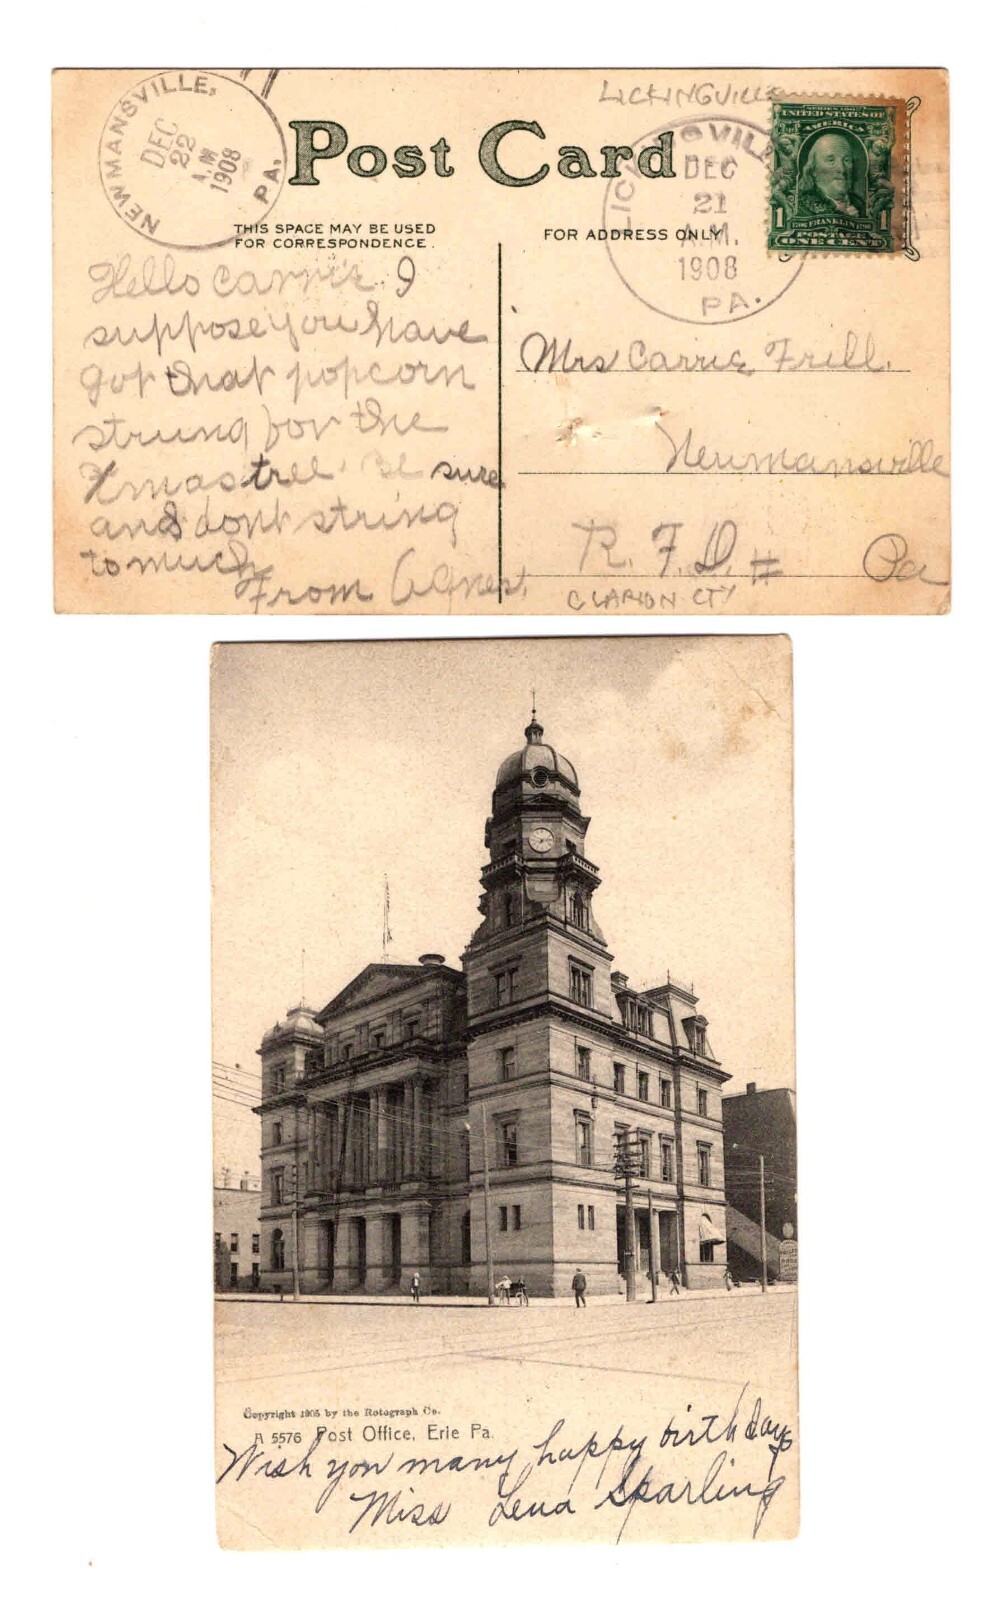 NEWMANSVILLE,
DEC
22
A.M
1908
PA.
Post Card
LICKINGVILLE
LICKINGVILL
DEC
21
A.M.
1908
PA.
SERIES 1902
UNITED STATES OF
AMERICA
1706 FRANKLIN 1790
1 1
POSTAGE
ONE CENT
THIS SPACE MAY BE USED
FOR CORRESPONDENCE.
FOR ADDRESS ONLY
Hello Carrie. I
suppose you have
got that popcorn
strung for the
Xmas tree. Be sure
and dont string
to much
From Agnes.
Mrs Carrie Frill.
Newmansville
R. F. D. # Pa
CLARION CTY
Copyright 1905 by the Rotograph Co.
A 5576 Post Office, Erie Pa.
Wish you many happy birthdays
Miss Lena Sparling